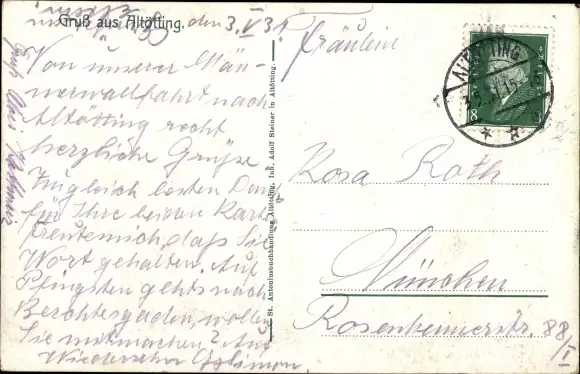 Gruß aus Altötting. den 3.V.31
Von unserer Män-
nerwallfahrt nach
Altötting recht
herzliche Grüße
Zugleich besten Dank
für Ihre beiden Kart.
freute mich, daß Sie
Wort gehalten. Auf
Pfingsten gehts nach
Berchtesgaden, wollen
Sie mitmachen? Auf
Wiedersehn
St. Antoniusbuchhandlung Altötting, Inh. Adolf Steiner in Altötting.
ALTÖTTING
8
Fräulein
Rosa Roth
München
Rosenheimerstr. 88/I